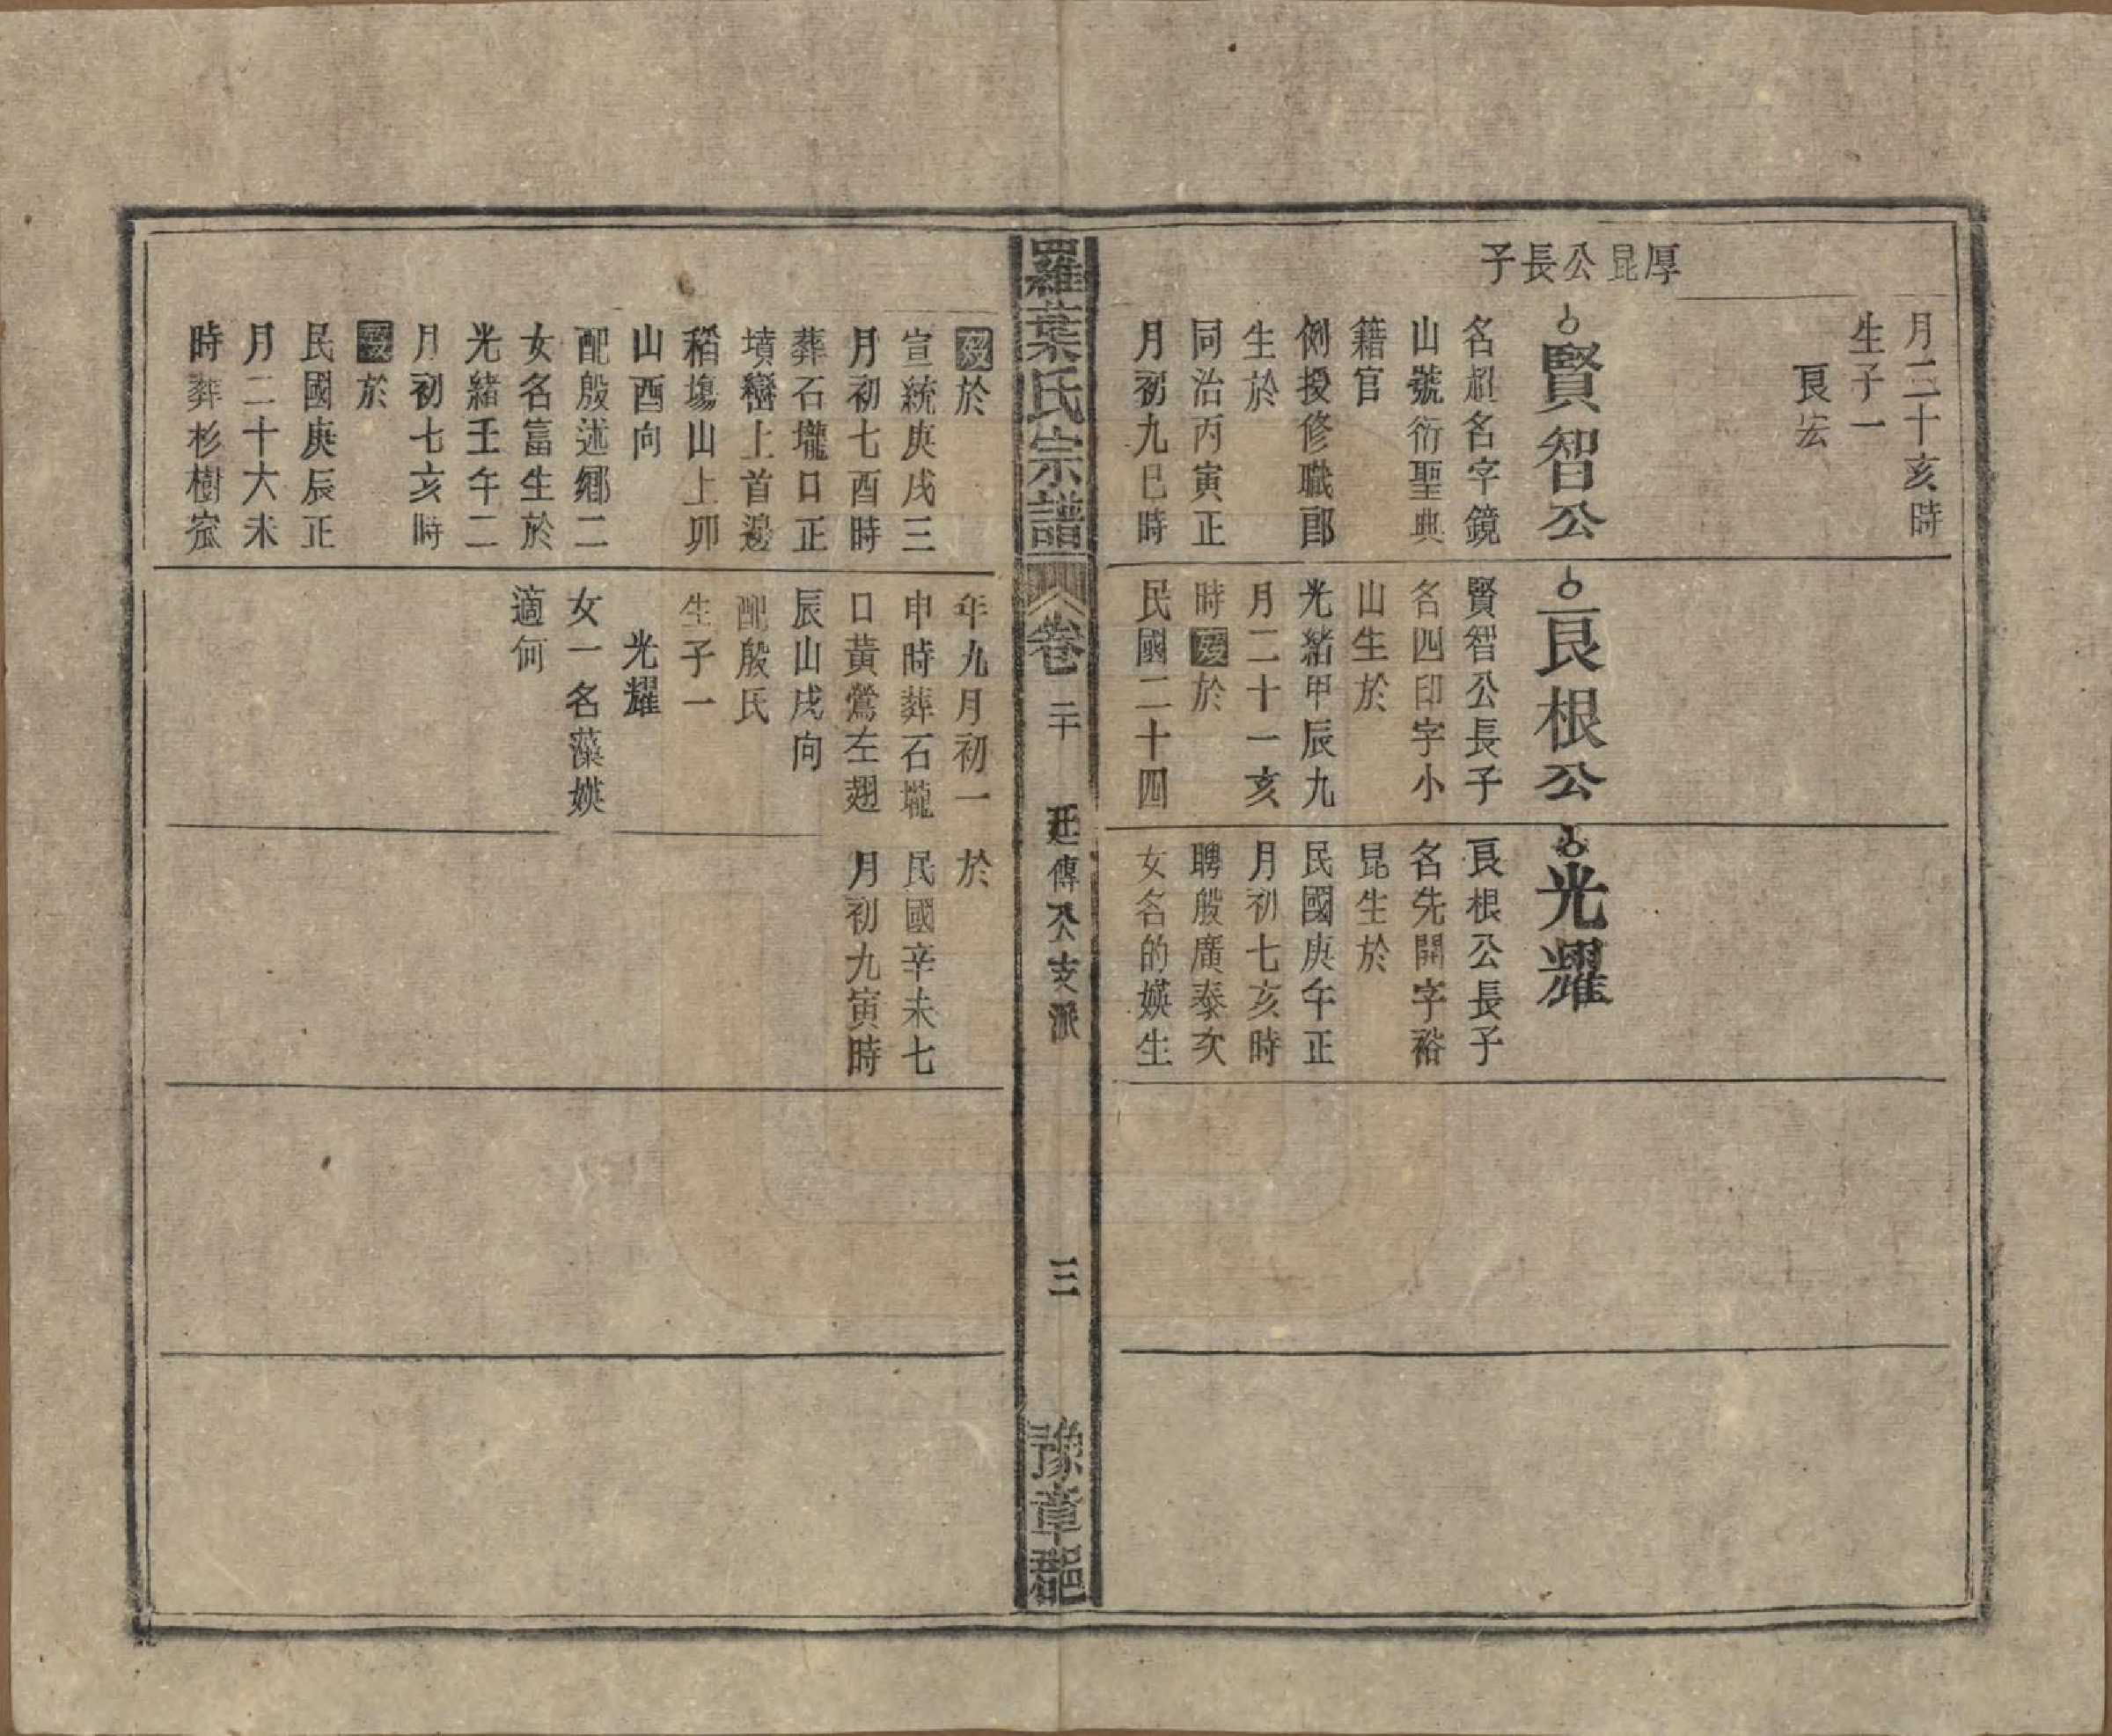 月二十亥時
生子一
良宏
厚昆公長子
賢智公
名超名字鏡
山號衍聖典
籍官
例授修職郎
生於
同治丙寅正
月初九巳時
良根公
賢智公長子
名四印字小
山生於
光緒甲辰九
月二十一亥
時歿於
民國二十四
光耀
良根公長子
名先開字裕
昆生於
民國庚午正
月初七亥時
聘殷廣泰次
女名的媖生
羅葉氏宗譜
卷二十
廷傳公支派
三
豫章郡
歿於
宣統庚戌三
月初七酉時
葬石壠口正
墳巒上首邊
稻塲山上卯
山酉向
配殷述鄉二
女名富生於
光緒壬午二
月初七亥時
歿於
民國庚辰正
月二十六未
時葬杉樹窊
年九月初一
申時葬石壠
口黃鶯左翅
辰山戌向
配殷氏
生子一
光耀
女一名藻媖
適何
於
民國辛未七
月初九寅時